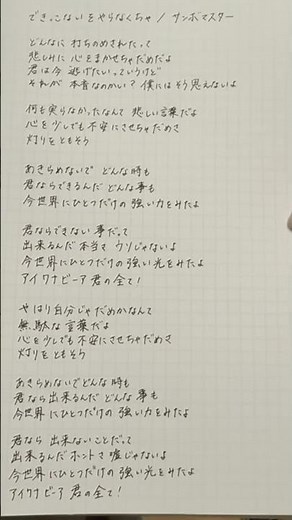 できっこないをやらなくちゃ / サンボマスター
どんなに打ちのめされたって
悲しみに心をまかせちゃだめだよ
君は今逃げたいっていうけど
それが本音なのかい？ 僕にはそう思えないよ
何も実らなかったなんて 悲しい言葉だよ
心を少しでも不安にさせちゃだめさ
灯りをともそう
あきらめないで どんな時も
君ならできるんだ どんな事も
今世界にひとつだけの強い力をみたよ
君ならできない事だって
出来るんだ本当さ ウソじゃないよ
今世界にひとつだけの強い光をみたよ
アイワナビーア君の全て！
やはり自分じゃだめかなんて
無駄な言葉だよ
心を少しでも不安にさせちゃだめさ
灯りをともそう
あきらめないでどんな時も
君なら出来るんだ どんな事も
今世界にひとつだけの強い力をみたよ
君なら出来ないことだって
出来るんだホントさ嘘じゃないよ
今世界にひとつだけの強い光をみたよ
アイワナビーア 君の全て！